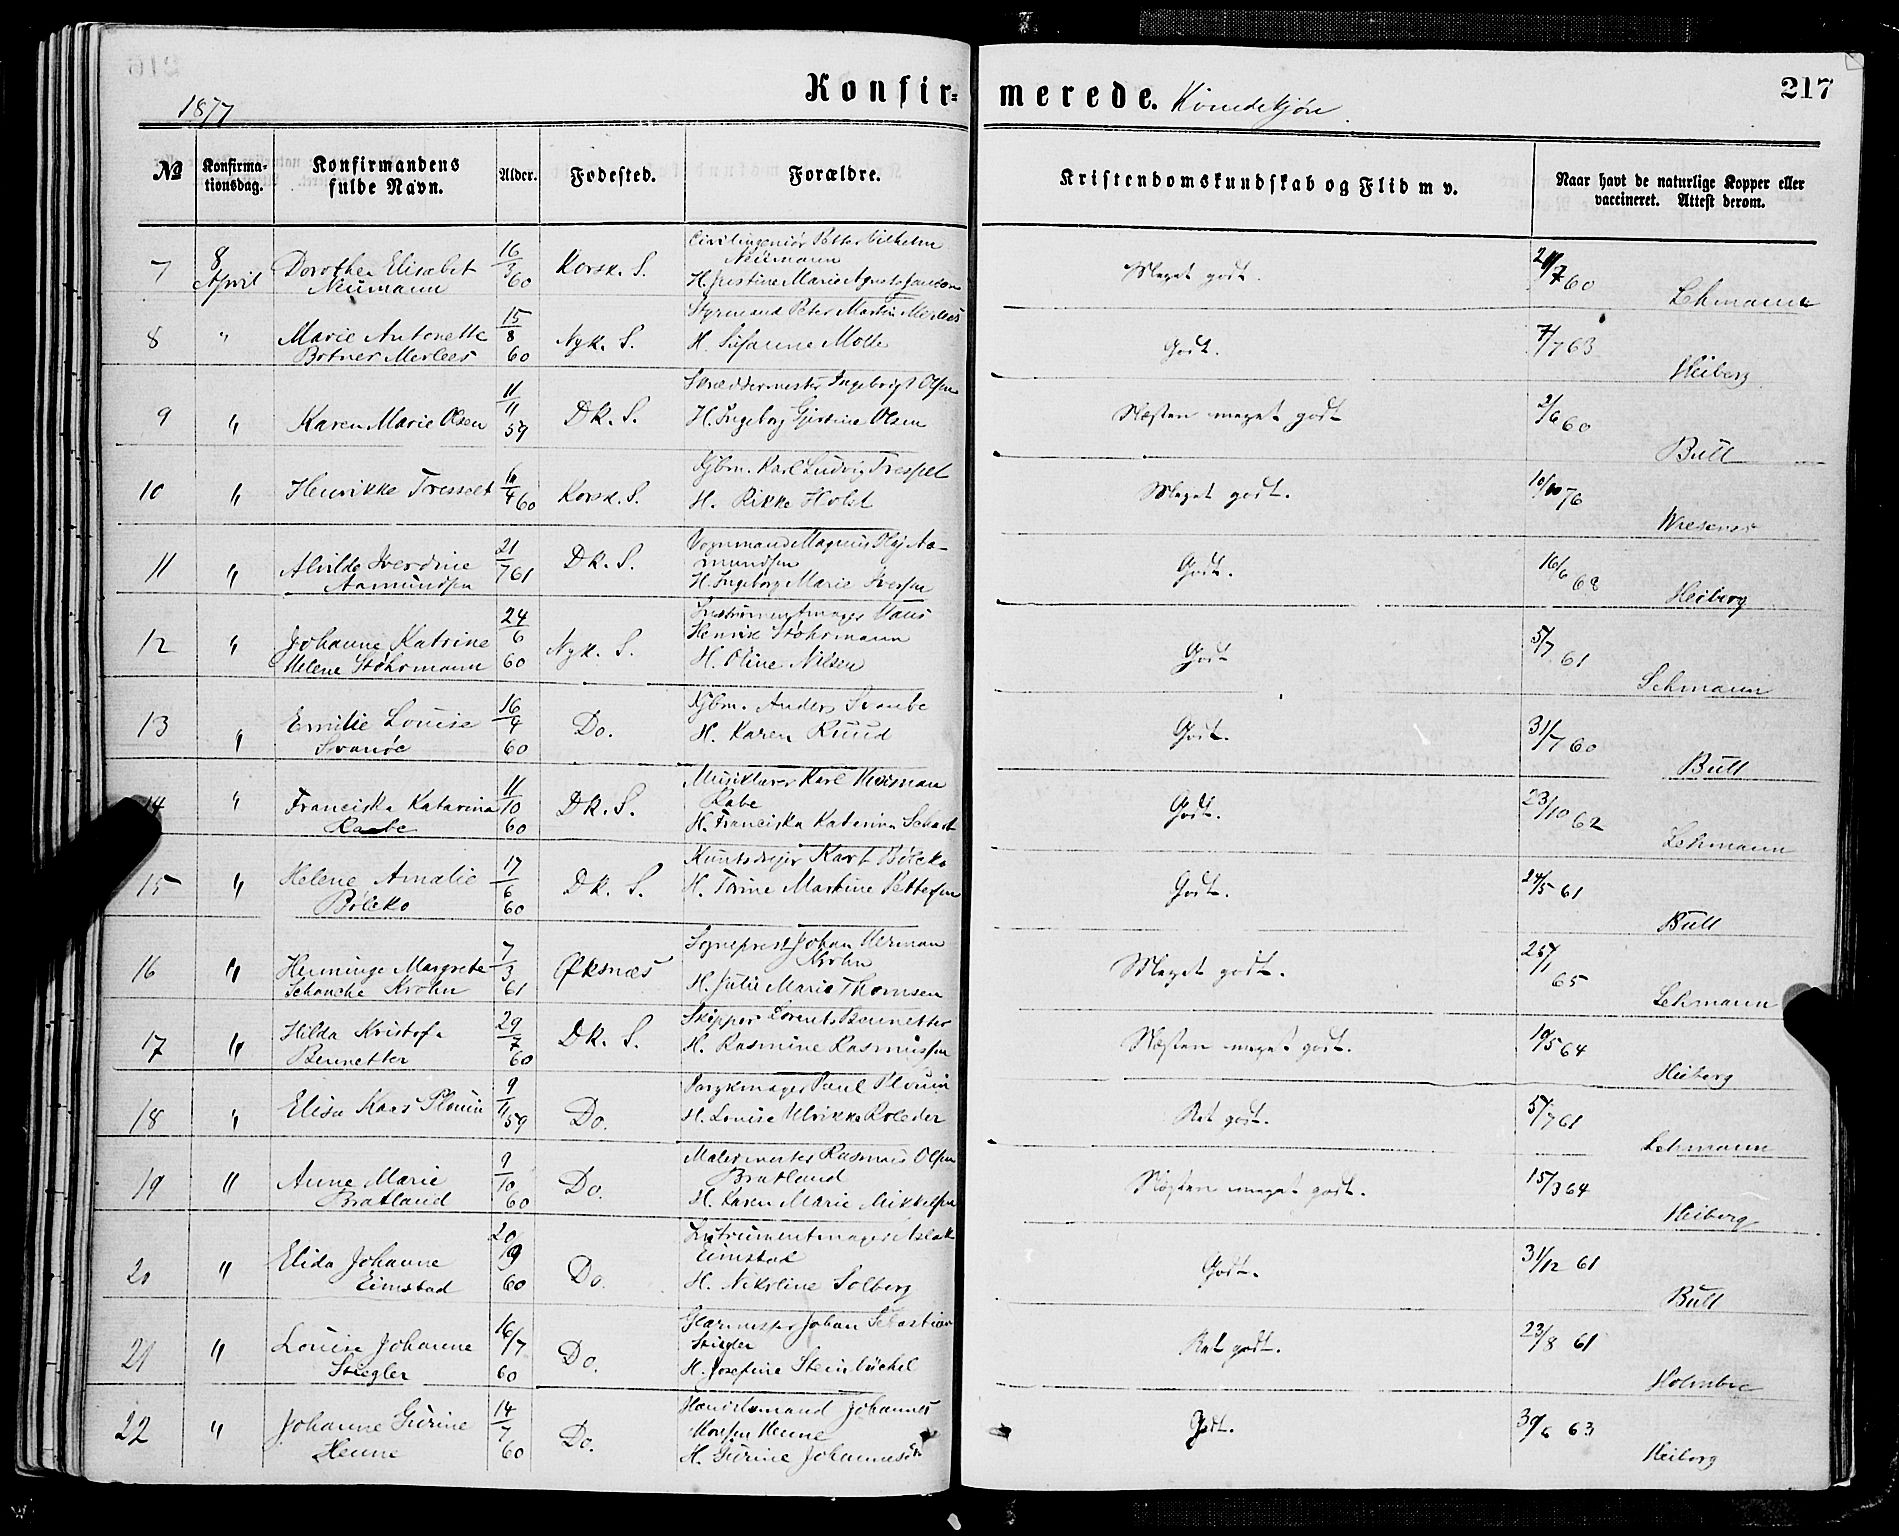 1877
Konfir=
merede. Kvindekjøn.
217
№
Konfirma-
tionsdag.
Konfirmandens
fulde Navn.
Alder.
Fødested.
Forældre.
Kristendomskundskab og Flid m v.
Naar havt de naturlige Kopper eller
vaccineret. Attest derom.
7 8 April Dorothea Elisabet Neumann 16/3 60 Korsk. S. Civilingeniør Petter Vilhelm Neumann H. Justine Marie Meget godt. 7 60 Lehmann
8 " Marie Antonette Merlees 15/8 60 Nyk. S. Styrmand Peter Martin Merlees H. Susanne Molle Godt. 7/7 63 Heiberg
9 " Karen Marie Olsen 11/11 59 Dk. S. Skræddermester Ingebrigt Olsen H. Ingeborg Olsen Næsten meget godt 2/6 60 Bull
10 " Henrikke Tresselt 4 60 Korsk. S. Kjbm. Karl Ludvig Tresselt H. Rikke Holst Meget godt. 10/10 76 Wiesener
11 " Alvilde Iverdine Aamundsen 21/7 61 Dk. S. Vognmand Magnus Olaj Aa-
mundsen H. Ingeborg Marie Iversen Godt. 16/6 62 Heiberg
12 " Johanne Katrine Helene Støhrmann 24/6 60 Nyk. S. Instrumentmager Hans Henrik Støhrmann H. Oline Nilsen Godt 5/7 61 Lehmann
13 " Emilie Louise Svanøe 16/4 60 Do. Kjbm. Anders Svanøe H. Karen Ruud Godt. 31/7 60 Bull
14 " Franciska Katarina Rabe 11/10 60 Dk. S. Musiklærer Karl Herman Rabe H. Franciska Katarina Godt. 23/10 62 Lehmann
15 " Helene Amalie Bølcko 17/6 60 Dk. S. Karl Bølcko H. Trine Martine Pettersen Godt. 24/5 61 Bull
16 " Henninge Margrete Schanche Krohn 7/3 61 Øksnæs Sogneprest Johan Herman Krohn H. Julie Marie Thomsen Meget godt. 25/1 65 Lehmann
17 " Hilda Kristofa Bennetter 29/7 60 Dk. S. Skipper Lorents Bennetter H. Rasmine Rasmussen Næsten meget godt. 19/5 64 Heiberg
18 " Elisa Kaas Plouin 9/11 59 Do. Parykmager Paul Plouin H. Louise Ulrikke Roleder Ret godt. 5/7 61 Lehmann
19 " Anne Marie Bratland 9/10 60 Do. Malermester Rasmus Olsen Bratland H. Karen Marie Mikkelsen Næsten meget godt. 15/3 64 Heiberg
20 " Elida Johanne Eimstad 20/9 60 Do. Instrumentmager Aslak Eimstad H. Nikoline Solberg Godt. 31/12 61 Bull
21 " Louise Johanne Stiegler 16/7 60 Do. Glarmester Johan Sebastian Stiegler H. Josefine Steinbüchel Ret godt. 23/8 61 Holmboe
22 " Johanne Gurine Henne 14/7 60 Do. Handelsmand Johannes Monsen Henne H. Gurine Johannesdr Godt. 30/6 63 Heiberg